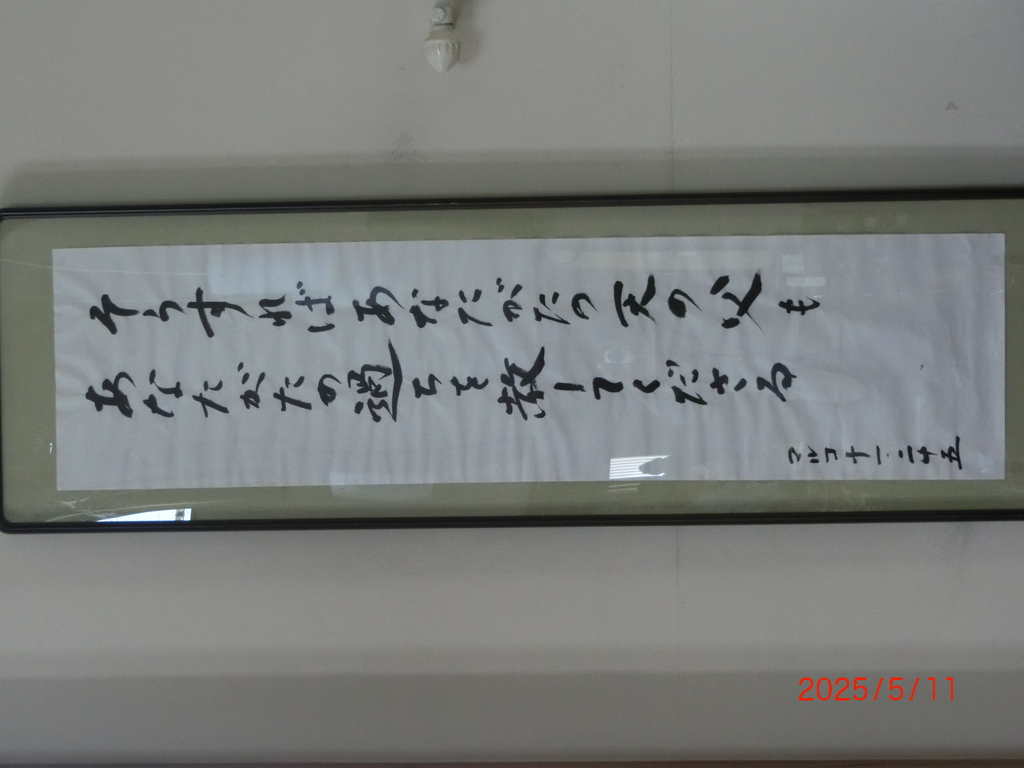 そうすればあなたがたの天の父も
あなたがたの過ちを赦してくださる
マルコ十一・二十五
2025/5/11